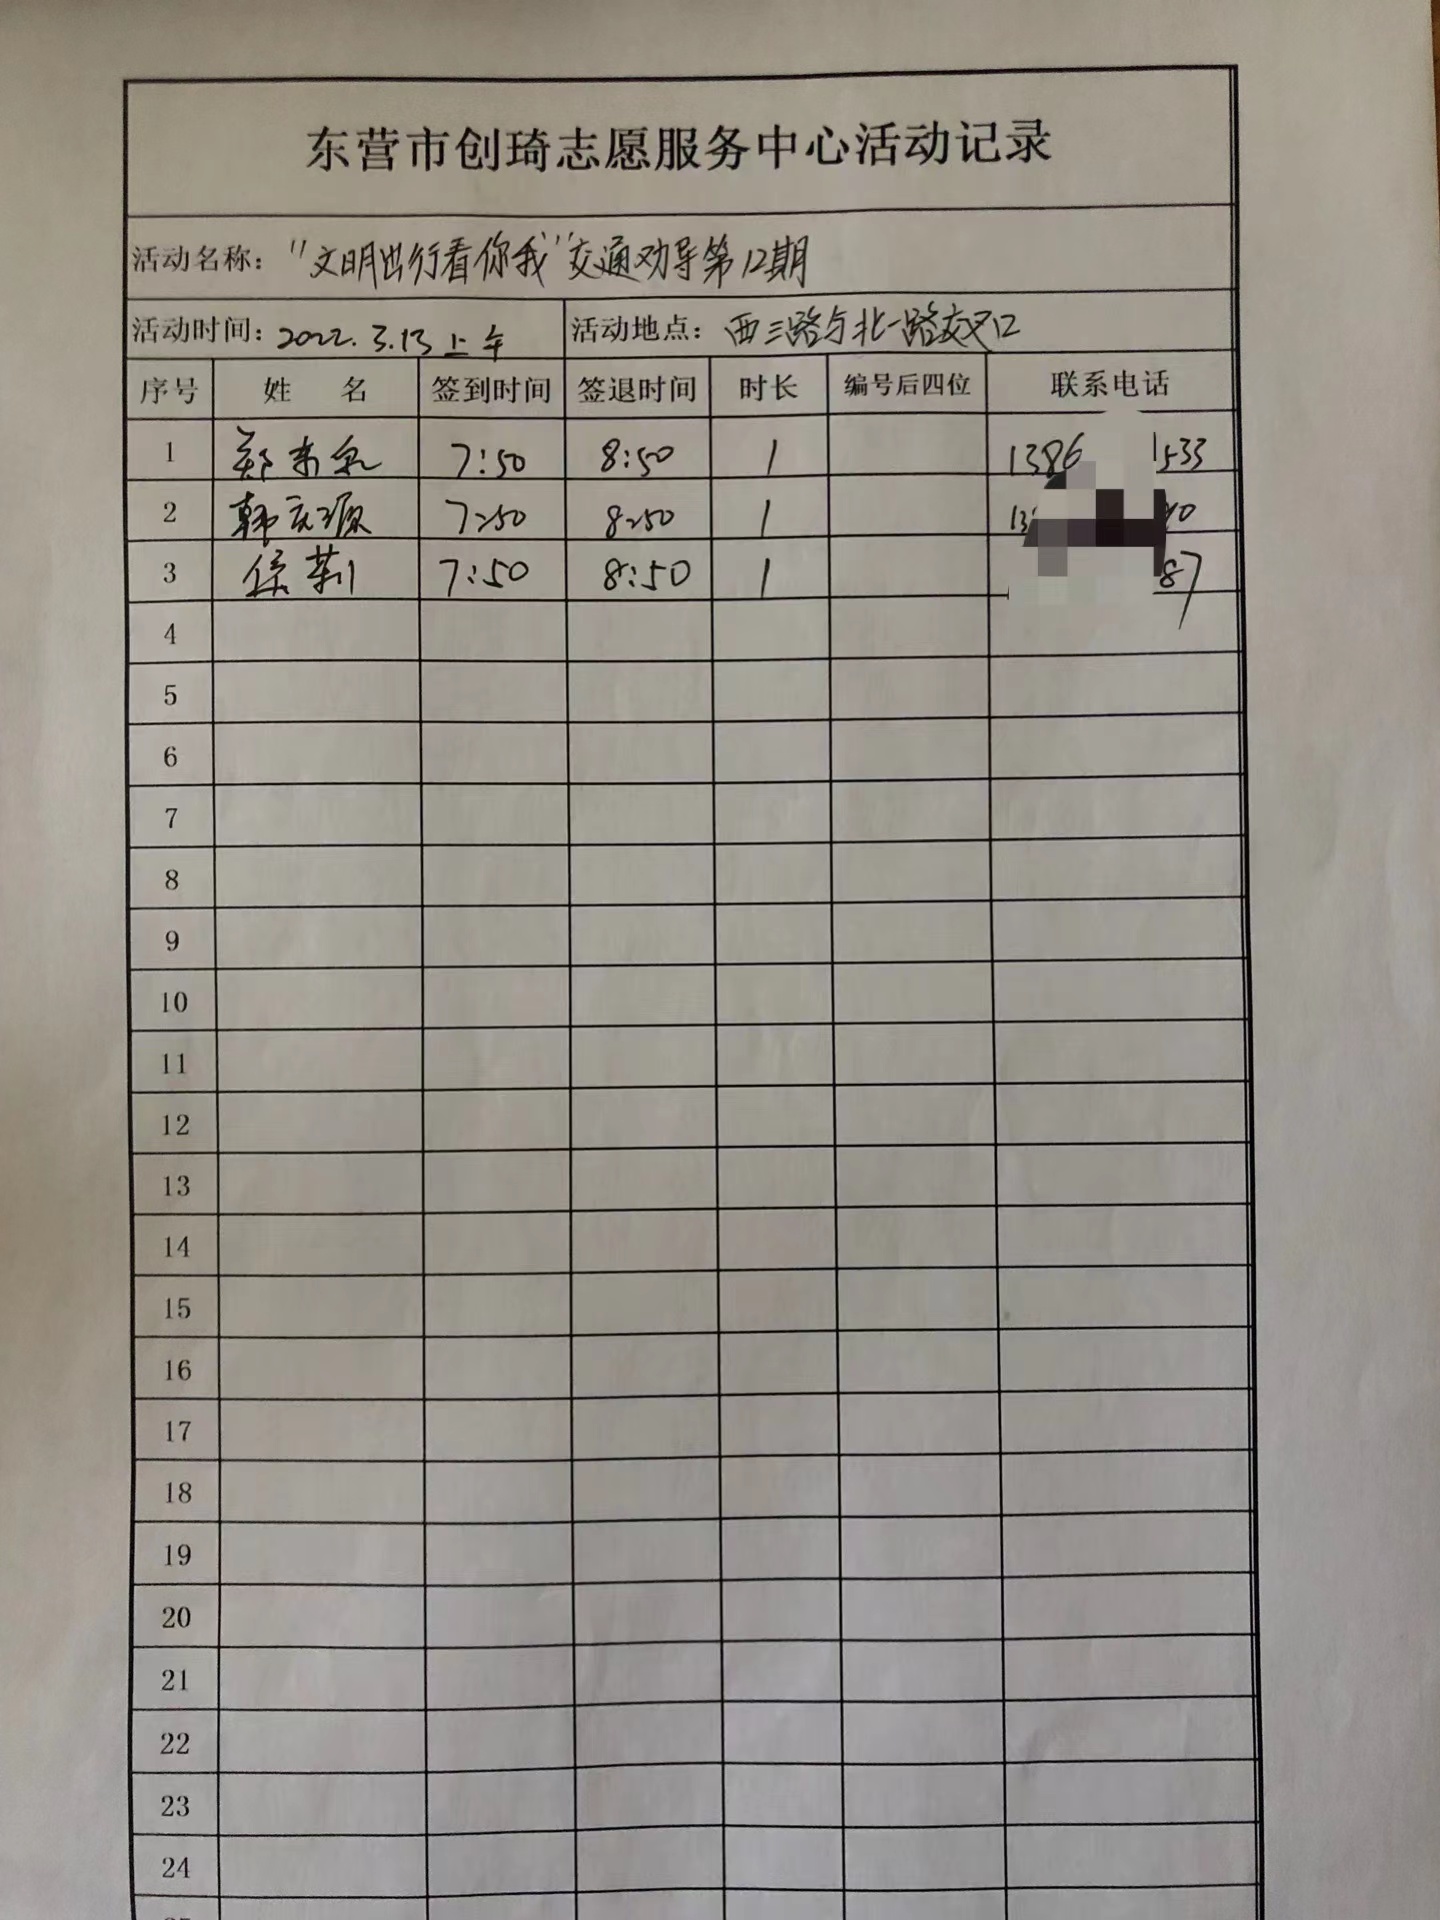 东营市创琦志愿服务中心活动记录
活动名称："文明出行看你我"交通劝导第12期
活动时间：2022.3.13上午 活动地点：西三路与北一路交叉口
序号 姓名 签到时间 签退时间 时长 编号后四位 联系电话
1 郑 7:50 8:50 1 1386 1533
2 韩庆源 7:50 8:50 1
3 侯莉 7:50 8:50 1 87
4
5
6
7
8
9
10
11
12
13
14
15
16
17
18
19
20
21
22
23
24